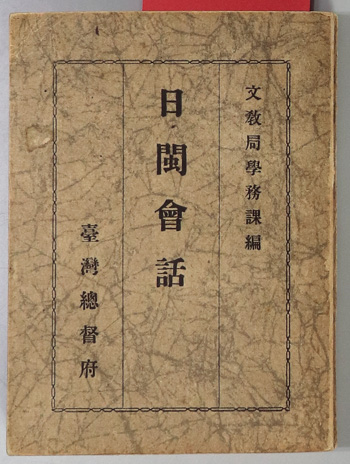 文敎局學務課編
日閩會話
臺灣總督府